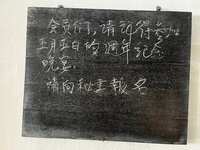 会员们,请记得参加
五月五日的週年纪念
晚宴.
请向秘书報名